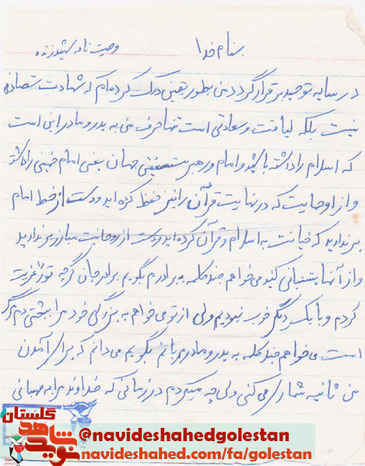 بنام خدا
وصیت نامه شهید زنده
در سایه توحید برقرار گردد من بطور یقینی درک کرده‌ام که شهادت تصادفی
نیست بلکه لیاقت و سعادتی است تنها حرف من به پدر و مادر این است
که اسلام را داشته باشید و امام و رهبر مستضعفین جهان یعنی امام خمینی را داشته
و از او حمایت که در نهایت قرآن را نیز حفظ کرده اید و دست از خط امام
بر ندارید که خیانت به اسلام و قرآن کرده اید و دست از روحانیت مبارز بر ندارید
و از آنها پشتیبانی کنید می‌خواهم چند کلمه به برادرم بگویم برادر جان گرچه تو را اذیت
کردم و با یکدیگر خوب نبودیم ولی از تو می‌خواهم به بزرگی خود مرا ببخشی دم مرگ
است می‌خواهم چند کلمه به پدر و مادر مهربانم بگویم می‌دانم که برای آمدن
من ثانیه شماری می‌کنی ولی چه میکردم در زمانی که خداوند مرا به مهمانی
نوید شاهد گلستان
@navideshahedgolestan
navideshahed.com/fa/golestan